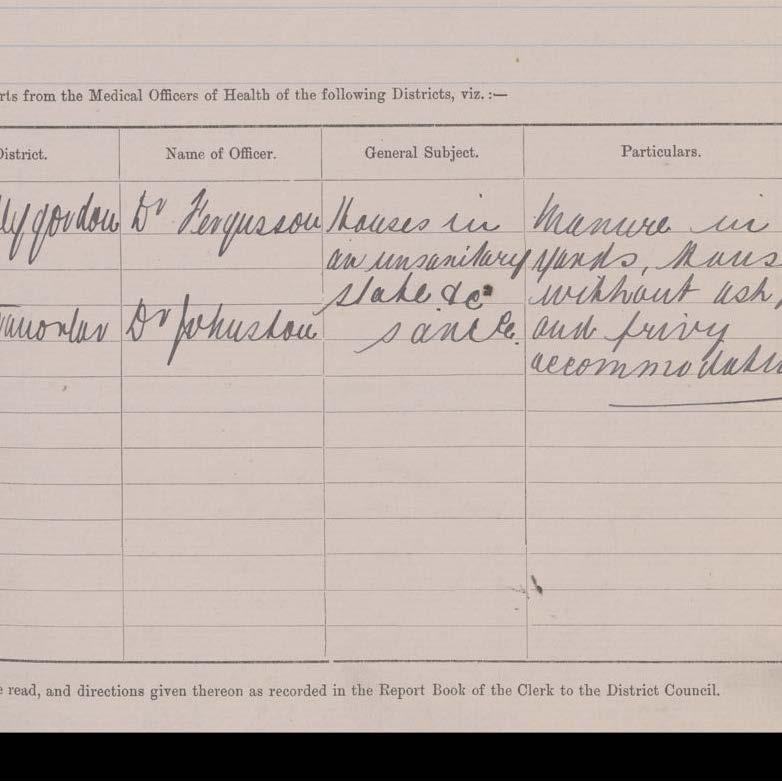 rts from the Medical Officers of Health of the following Districts, viz.:—
District. Name of Officer. General Subject. Particulars.
lygordon Dr Fergusson Houses in Manure in
an unsanitary yards, Hous
state &c without ash,
anorlar Dr Johnston same and privy
accommodatio
read, and directions given thereon as recorded in the Report Book of the Clerk to the District Council.